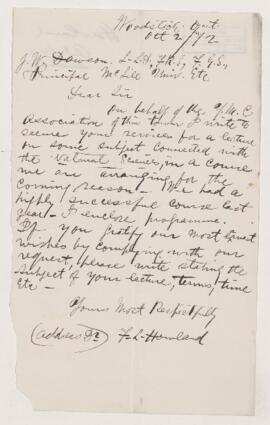 Woodstock Ont
Oct 2/72
J. W. Dawson, L.L.D, F.R.S, F.G.S,
Principal McGill Univ. Etc
Dear Sir
On behalf of the Y.M.C
Association of this town I write to
secure your services for a lecture
on some subject connected with
the Natural Sciences, in a Course
we are arranging for the
coming season - We had a
highly successful course last
year - I enclose programme.
If you gratify our most earnest
wishes by complying with our
request, please write stating the
subject of your lecture, terms, time
Etc -
Yours Most Respectfully
(address Dr)